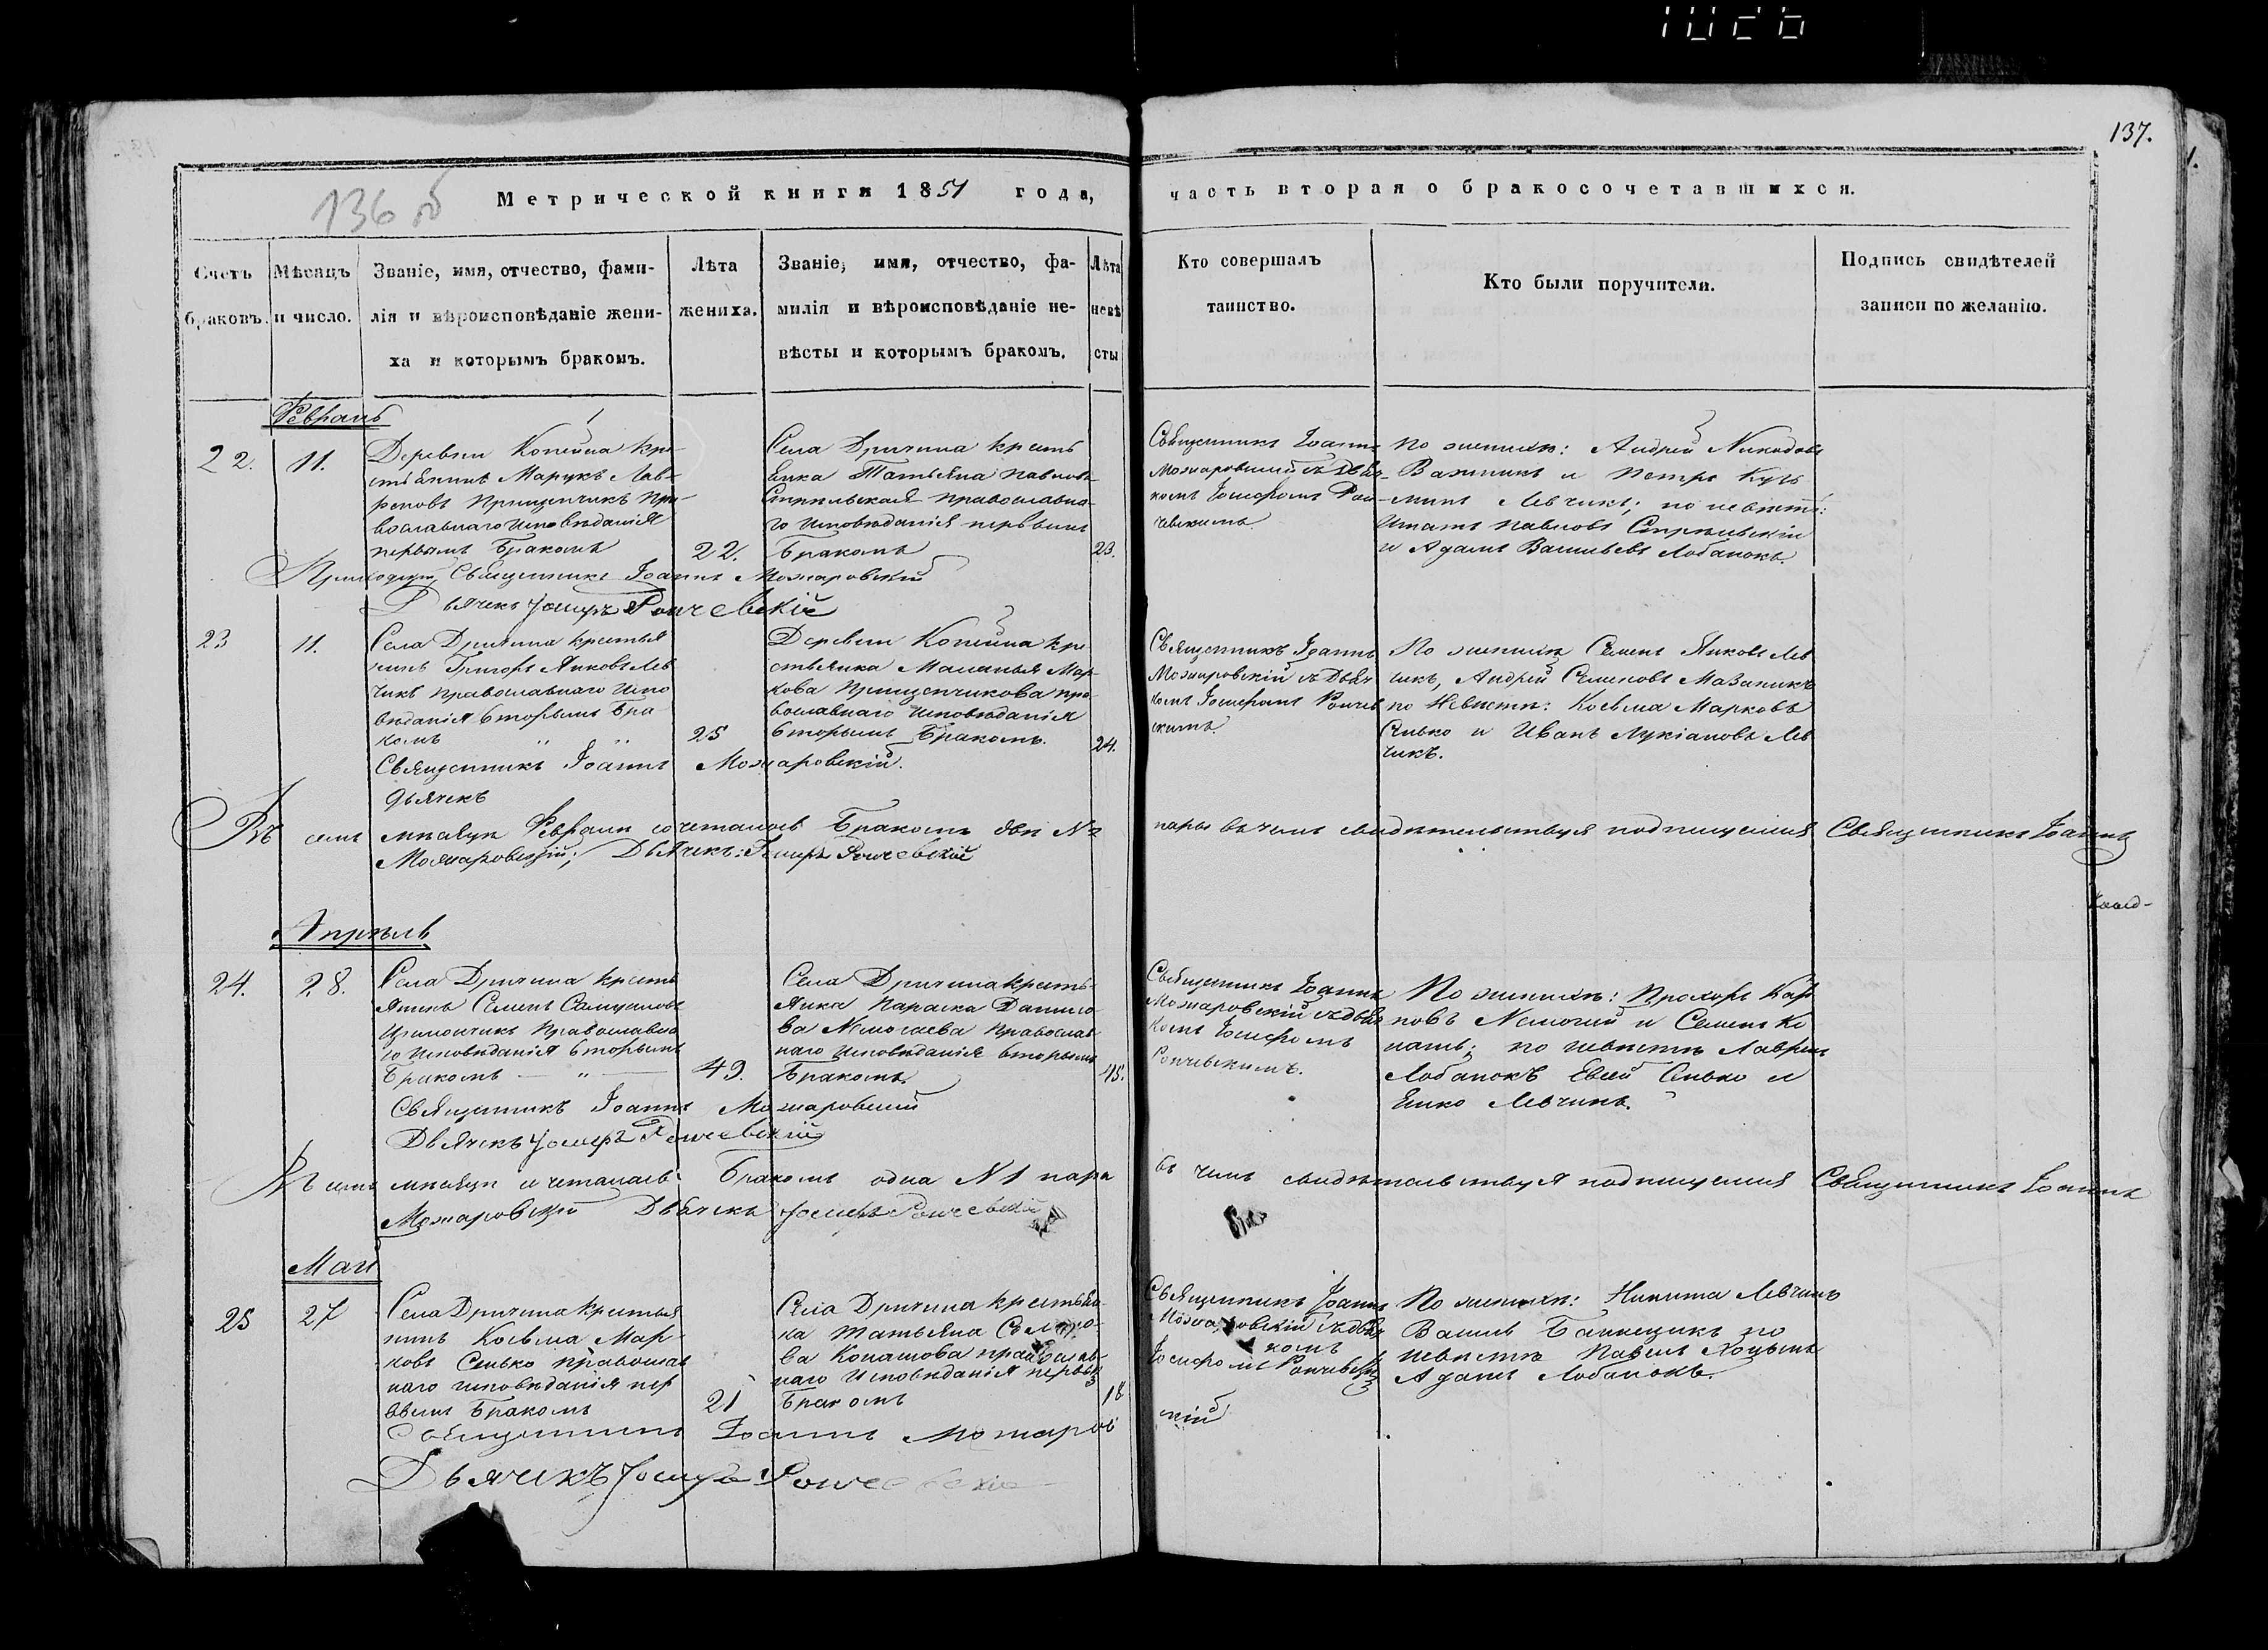 137.
136 об
Метрической книги 1851 года, часть вторая о бракосочетавшихся.
Счетъ браковъ.
Мѣсяцъ и число.
Званіе, имя, отчество, фами-
лія и вѣроисповѣданіе жени-
ха и которымъ бракомъ.
Лѣта
жениха.
Званіе, имя, отчество, фа-
милія и вѣроисповѣданіе не-
вѣсты и которымъ бракомъ.
Лѣта
невѣ
сты
Кто совершалъ
таинство.
Кто были поручители.
Подпись свидѣтелей
записи по желанію.
Февраль
22.
11.
Деревни Копейна кре-
стьянинъ Марукъ Лав-
реновъ Прищепчикъ пра-
вославнаго исповѣданія
первымъ бракомъ
22.
Села Дричина кресть
янка Татьяна Павлова
Стрѣльская православна-
го исповѣданія первымъ
бракомъ
23.
Священникъ Іоаннъ
Можаровскій съ дьяч-
комъ Іосифомъ Рон-
чевскимъ
По женихѣ: Андрей Никодовъ
Важникъ и Петръ Кузь
минъ Левчикъ; по невѣстѣ:
Игнатъ Павловъ Стрѣльскій
и Адамъ Васильевъ Лобанокъ.
Приходскій Священникъ Іоаннъ Можаровскій
Дьячекъ Іосифъ Рончевскій
23
11.
Села Дричина крестья
нинъ Григоръ Яковъ Лев
чикъ православнаго испо
вѣданія вторымъ бра
комъ " "
25
Деревни Копейна кре
стьянка Маланья Мар-
кова Прищепчикова пра-
вославнаго исповѣданія
вторымъ бракомъ.
24.
Священникъ Іоаннъ
Можаровскій съ дьяч
комъ Іосифомъ Рончев
скимъ.
По женихѣ Семенъ Яковъ Лев
чикъ, Андрей Семеновъ Мазаникъ
по невѣстѣ: Козьма Марковъ
Сенько и Иванъ Лукіановъ Лев
чикъ.
Священникъ Іоаннъ Можаровскій.
дьячекъ
Въ семъ мѣсяцѣ Февралѣ сочеталось бракомъ двѣ №2 пары въ чемъ свидѣтельствуя подписуемся Священникъ Іоаннъ
Можаровскій; Дьячекъ: Іосифъ Рончевскій
Апрѣль
24.
28.
Села Дричина кресть
янинъ Семенъ
православна
го исповѣданія вторымъ
бракомъ — " —
49.
Села Дричина кресть-
янка Параска Данило
ва Немогаева православ
наго исповѣданія вторымъ
бракомъ.
45.
Священникъ Іоаннъ
Можаровскій съ дьяч
комъ Іосифомъ
Рончевскимъ.
По женихѣ: Прохоръ Кар
повъ Немогай и Семенъ Ко
нашъ; по невѣстѣ Лаврен
Лобанокъ Евсей Сенько и
Левчикъ.
Священникъ Іоаннъ Можаровскій
Дьячекъ Іосифъ Рончевскій
Въ семъ мѣсяцѣ сочеталась бракомъ одна №1 пара въ чемъ свидѣтельствуя подписуемся Священникъ Іоаннъ
Можаровскій Дьячекъ Іосифъ Рончевскій
Маи
25
27
Села Дричина крестья
нинъ Козьма Мар-
ковъ Сенько православ
наго исповѣданія пер
вымъ бракомъ
21
Села Дричина крестьян-
ка Татьяна
ва Конашова православ-
наго исповѣданія первым
бракомъ
18
Священникъ Іоаннъ
Можаровскій съ дьяч
комъ
Іосифомъ Рончевскі
По женихѣ: Никита Левчикъ
Василь по
невѣстѣ Павелъ
Адамъ Лобанокъ.
Священникъ Іоаннъ Можаровскій
Дьячекъ Іосифъ Рончевскій